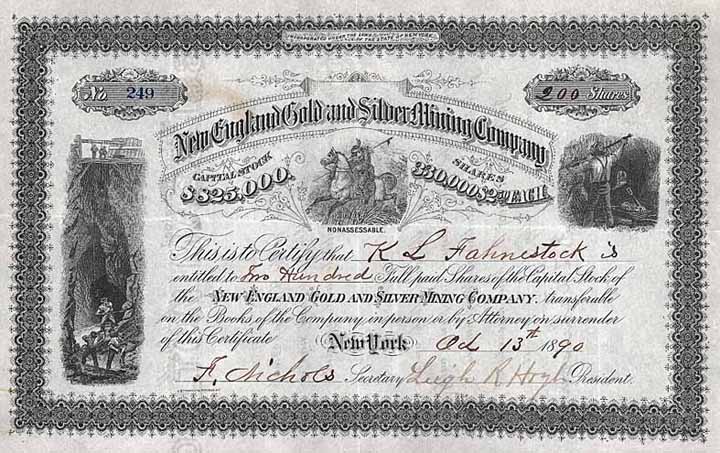 INCORPORATED UNDER THE LAWS OF THE STATE OF NEW YORK
No 249
200 Shares
New England Gold and Silver Mining Company
CAPITAL STOCK
$825,000.
SHARES
330,000 $2.50 EACH.
NONASSESSABLE.
This is to Certify that K L Fahnestock is
entitled to Two Hundred Full paid Shares of the Capital Stock of
the NEW ENGLAND GOLD AND SILVER MINING COMPANY. transferable
on the Books of the Company in person or by Attorney on surrender
of this Certificate New York Oct 13th 1890
F. Nichols Secretary Leigh R Hoyt President.